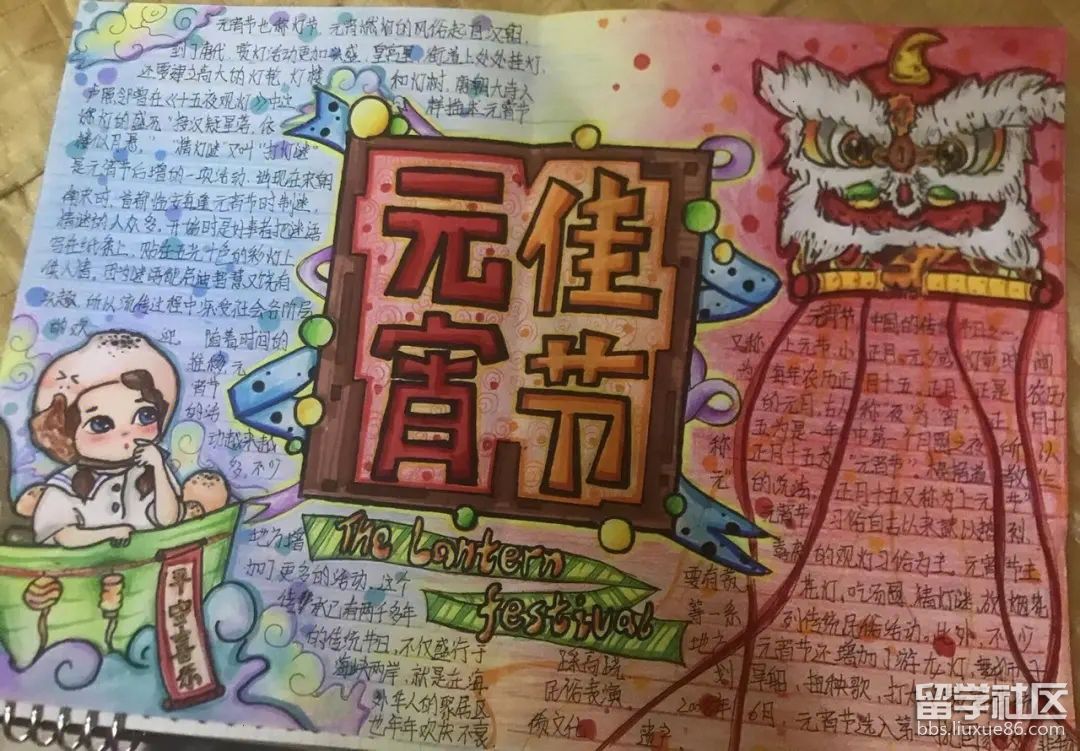 元宵节也称灯节，元宵燃灯的风俗起自汉朝，
到了唐代，赏灯活动更加兴盛，皇宫里，街道上处处挂灯，
还要建立高大的灯轮，灯楼和灯树，唐朝大诗人
卢照邻曾在《十五夜观灯》中这样描述元宵节
燃灯的盛况"接汉疑星落，依
楼似月悬。""猜灯谜"又叫"打灯谜"
是元宵节后增的一项活动，出现在宋朝
南宋时，首都临安每逢元宵节时制谜，
猜谜的人众多，开始时是好事者把谜语
写在纸条上，贴在五光十色的彩灯上
供人猜，因为谜语能启迪智慧又饶有
兴趣，所以流传过程中深受社会各阶层
的欢迎 随着时间的
推移，元
宵节
的活
动越来越
多，不少
地方增
加了更多的活动，这个
传承已有两千多年
的传统节日，不仅盛行于
海峡两岸，就是在海
外华人的聚居区
也年年欢庆不衰
元宵
佳节
The Lantern
festival
平安喜乐
元宵节，中国的传统节日之一
又称上元节，小正月、元夕或灯节，时间
为每年农历正月十五，正月是农历
的元月，古人称夜为"宵"，正月十
五为是一年中第一个月圆之夜，所以
称正月十五为"元宵节"，根据道教"三
元"的说法，正月十五又称为"上元节"
元宵节习俗自古以来就以热烈
喜庆的观灯习俗为主，元宵节主
要有赏花灯，吃汤圆，猜灯谜，放烟花
等一系列传统民俗活动，此外，不少
地方元宵节还增加了游龙灯，舞狮子
踩高跷，划旱船，扭秧歌，打
民俗表演，2008年6月，元宵节选入第
留学社区
bbs.liuxue86.com